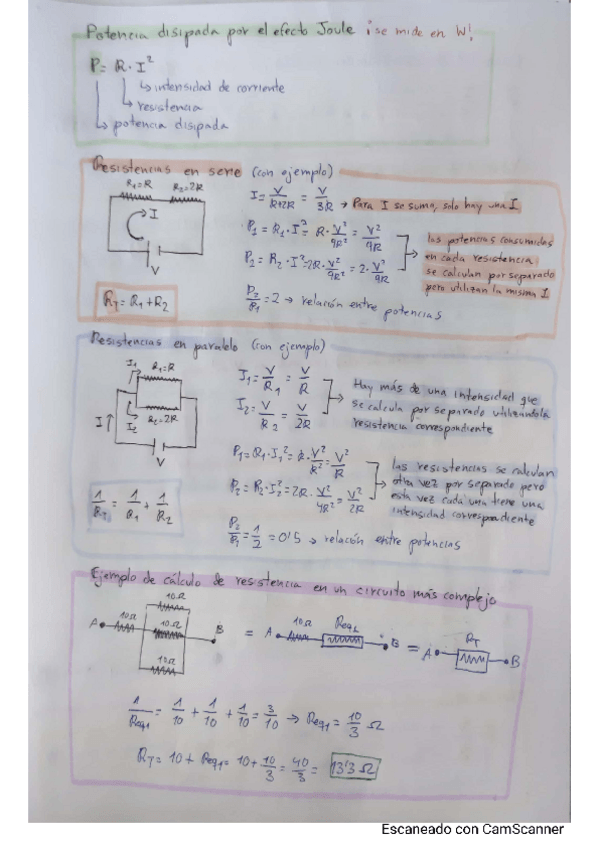 Potencia disipada por el efecto Joule ¡se mide en W!
P = R · I²
↳ intensidad de corriente
↳ resistencia
↳ potencia disipada
Resistencias en serie (con ejemplo)
R₁=R R₂=2R
I
V
R_T = R₁ + R₂
I = V/(R+2R) = V/3R → Para I se suma, solo hay una I
P₁ = R₁ · I² = R · V²/9R² = V²/9R
P₂ = R₂ · I² = 2R · V²/9R² = 2 · V²/9R
las potencias consumidas
en cada resistencia
se calculan por separado
pero utilizan la misma I
P₂/P₁ = 2 → relación entre potencias
Resistencias en paralelo (con ejemplo)
I₁ R₁=R
I I₂ R₂=2R
V
1/R_T = 1/R₁ + 1/R₂
I₁ = V/R₁ = V/R
I₂ = V/R₂ = V/2R
Hay más de una intensidad que
se calcula por separado utilizando la
resistencia correspondiente
P₁ = R₁ · I₁² = R · V²/R² = V²/R
P₂ = R₂ · I₂² = 2R · V²/4R² = V²/2R
las resistencias se calculan
otra vez por separado pero
esta vez cada una tiene una
intensidad correspondiente
P₂/P₁ = 1/2 = 0'5 → relación entre potencias
Ejemplo de cálculo de resistencia en un circuito más complejo
A 10Ω 10Ω 10Ω B = A 10Ω Req₁ B = A R_T B
1/Req₁ = 1/10 + 1/10 + 1/10 = 3/10 → Req₁ = 10/3 Ω
R_T = 10 + Req₁ = 10 + 10/3 = 40/3 = 13'3 Ω
Escaneado con CamScanner